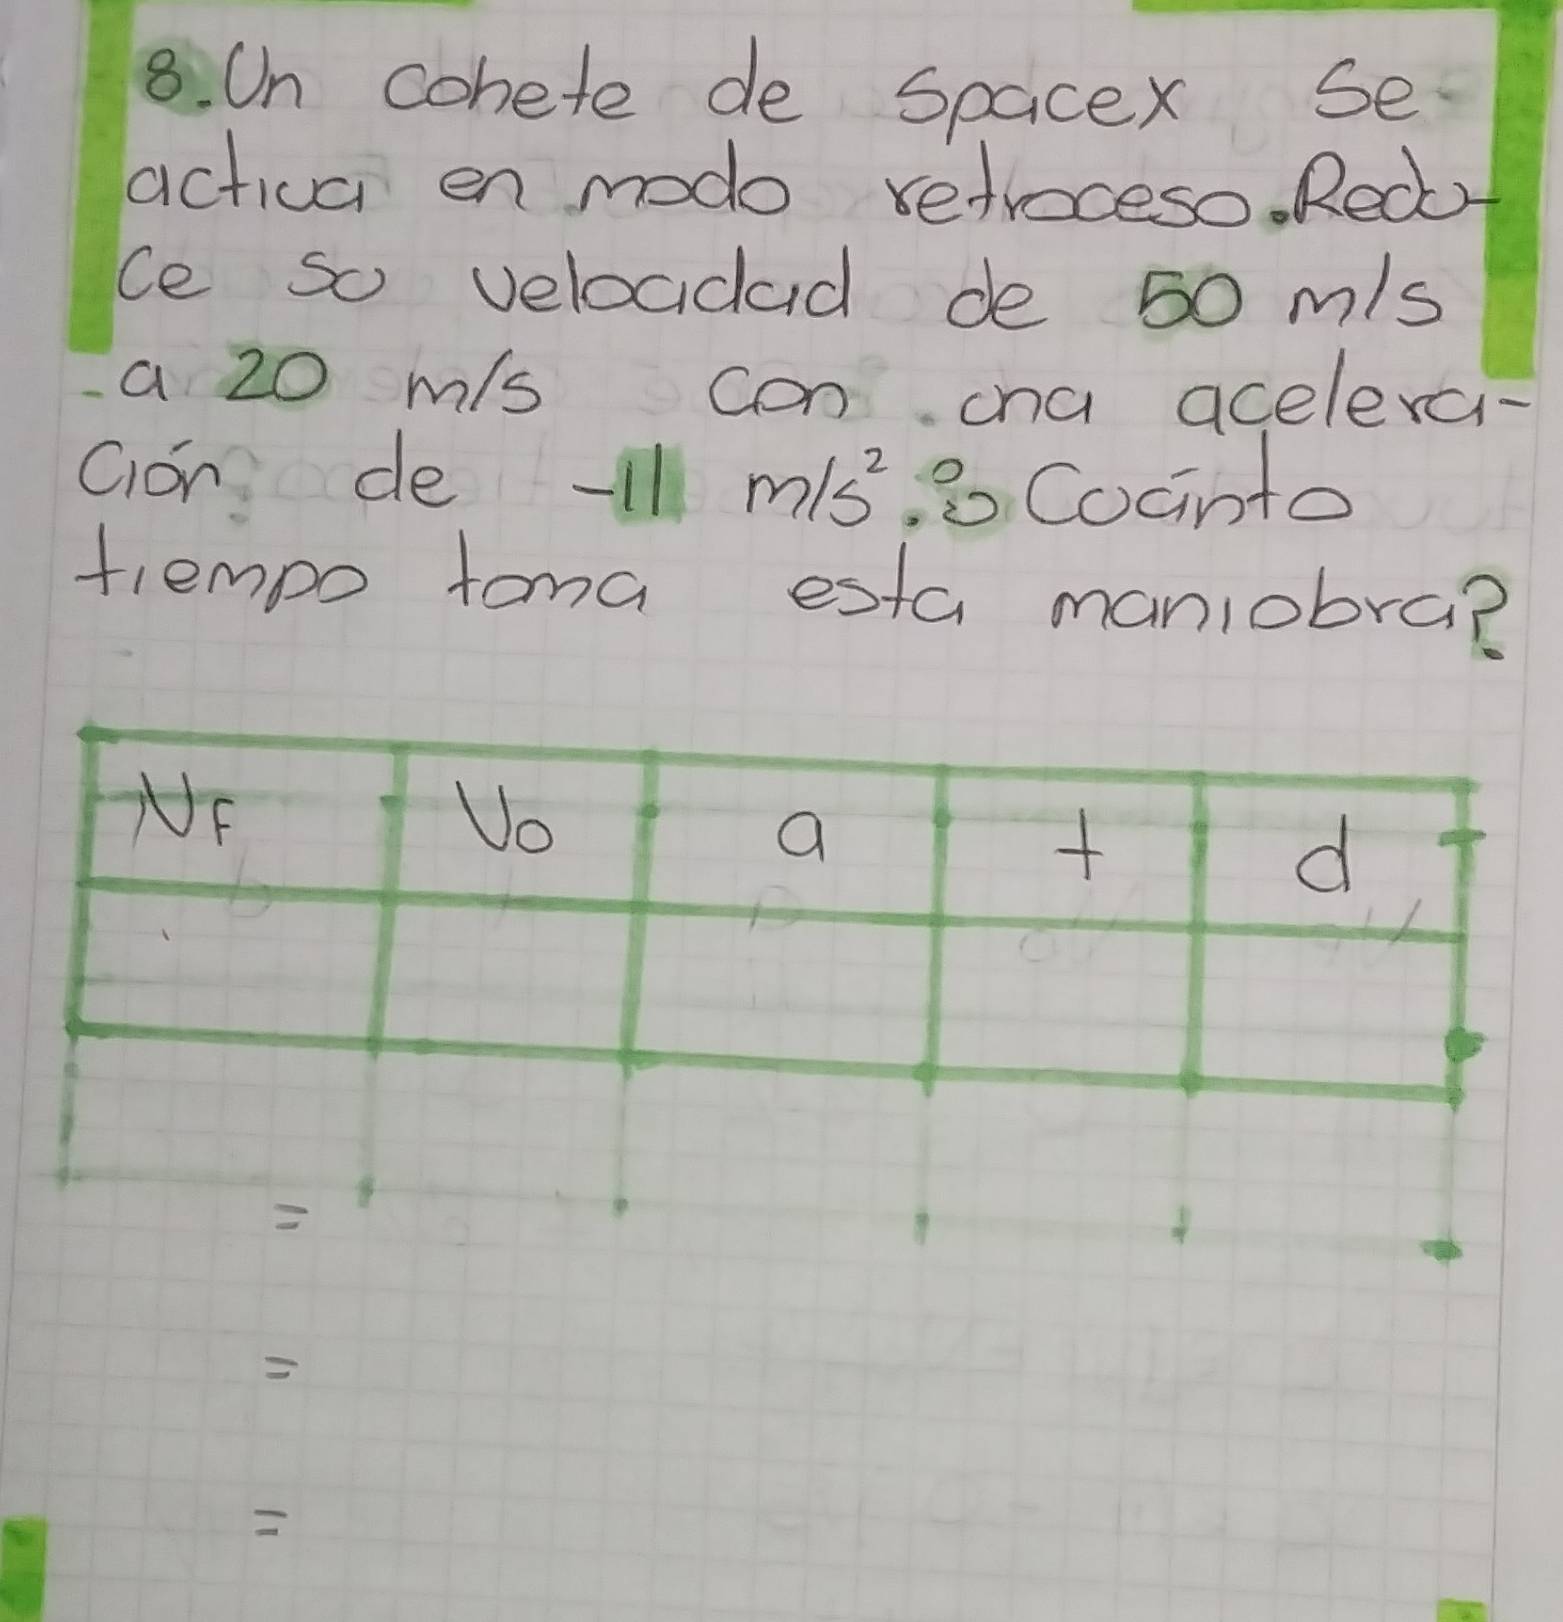 8. Un cohete de Spacex Se
activa en modo retroceso. Redu-
ce su velocidad de 50 m/s
a 20 m/s con una acelera-
ción de -11 m/s². ¿Cuánto
tiempo toma esta maniobra?
VF Vo a t d
=
=
=